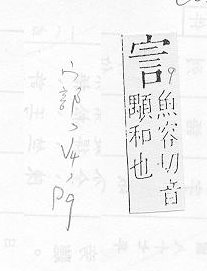 9
魚容切音
顒和也
宀部、V4、P9